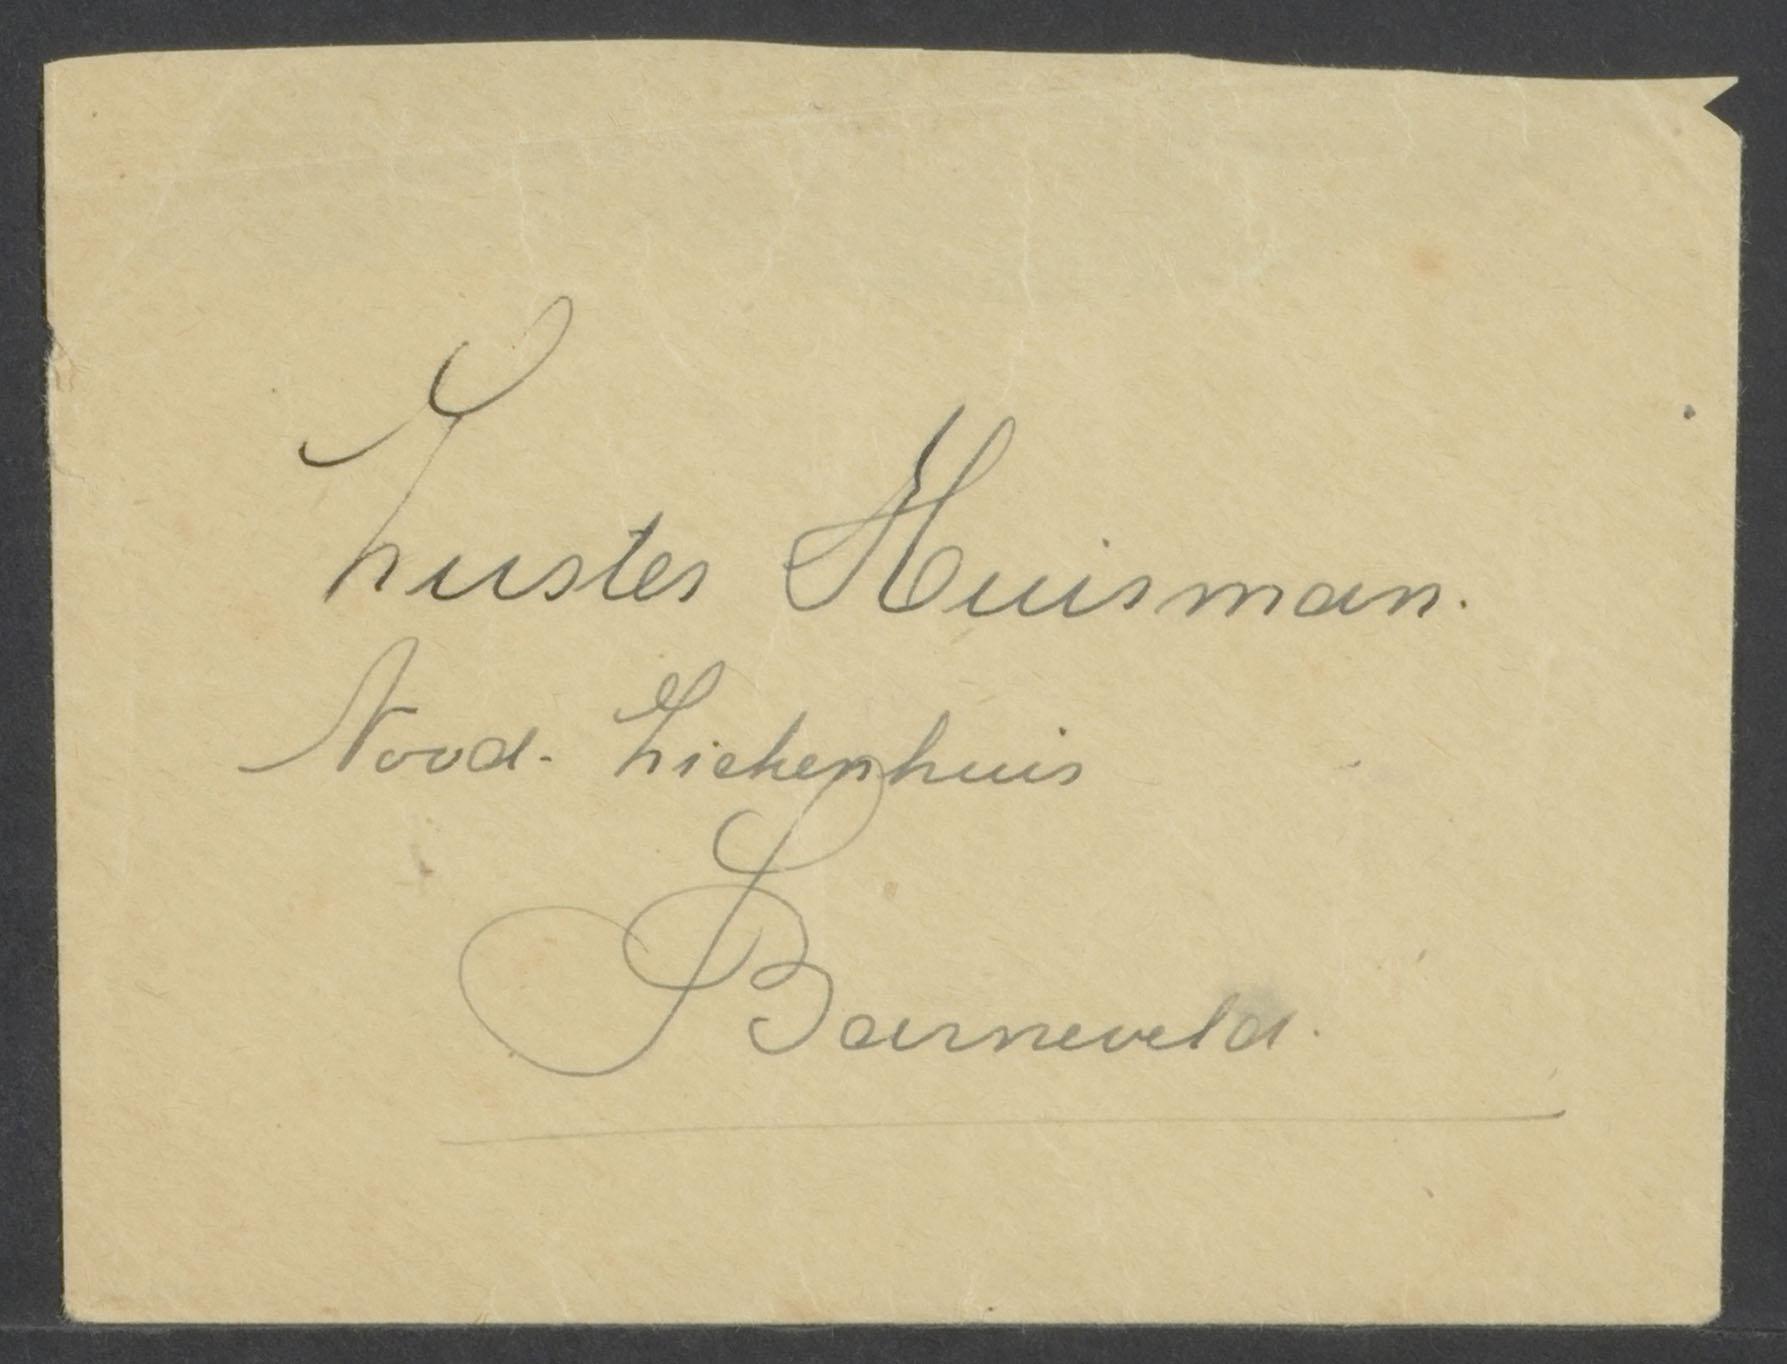 Zuster Huisman.
Nood-Ziekenhuis
Barneveld.